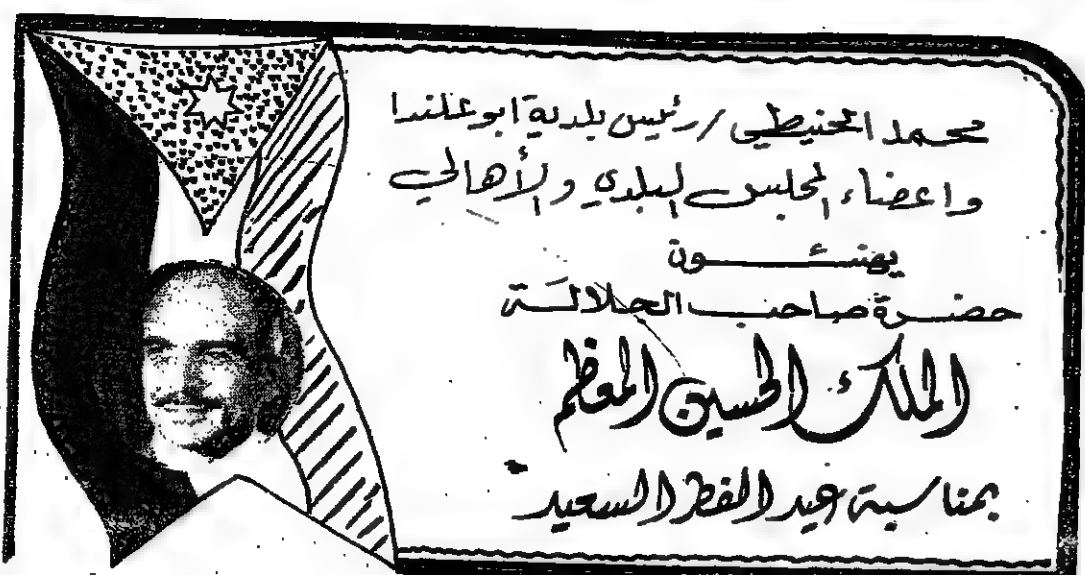 محمد الحنيطي / رئيس بلدية ابو علندا
واعضاء المجلس البلدي والأهالي
يهنئـــــون
حضـرة صاحـب الجـلالـة
الملك الحسين المعظم
بمناسبة عيد الفطر السعيد